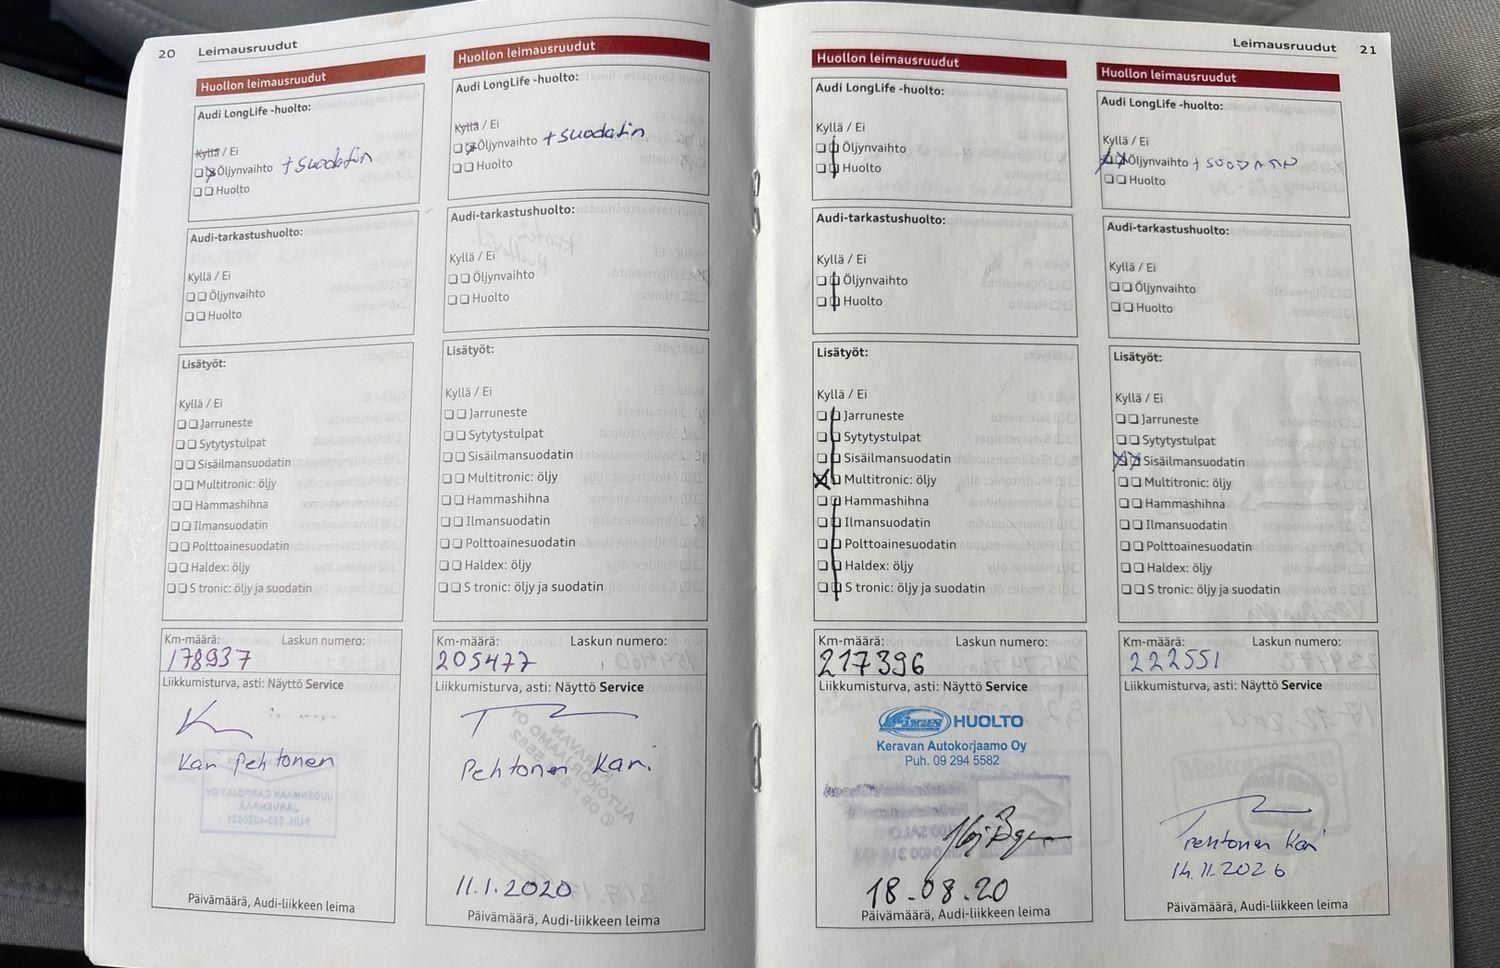 20 Leimausruudut
Huollon leimausruudut
Audi LongLife -huolto:
Kyllä / Ei
Öljynvaihto + suodatin
Huolto
Audi-tarkastushuolto:
Kyllä / Ei
Öljynvaihto
Huolto
Lisätyöt:
Kyllä / Ei
Jarruneste
Sytytystulpat
Sisäilmansuodatin
Multitronic: öljy
Hammashihna
Ilmansuodatin
Polttoainesuodatin
Haldex: öljy
S tronic: öljy ja suodatin
Km-määrä: Laskun numero:
178937
Liikkumisturva, asti: Näyttö Service
Kari Pehtonen
Päivämäärä, Audi-liikkeen leima
Huollon leimausruudut
Audi LongLife -huolto:
Kyllä / Ei
Öljynvaihto + suodatin
Huolto
Audi-tarkastushuolto:
Kyllä / Ei
Öljynvaihto
Huolto
Lisätyöt:
Kyllä / Ei
Jarruneste
Sytytystulpat
Sisäilmansuodatin
Multitronic: öljy
Hammashihna
Ilmansuodatin
Polttoainesuodatin
Haldex: öljy
S tronic: öljy ja suodatin
Km-määrä: Laskun numero:
205477
Liikkumisturva, asti: Näyttö Service
Pehtonen Kari.
11.1.2020
Päivämäärä, Audi-liikkeen leima
Leimausruudut 21
Huollon leimausruudut
Audi LongLife -huolto:
Kyllä / Ei
Öljynvaihto
Huolto
Audi-tarkastushuolto:
Kyllä / Ei
Öljynvaihto
Huolto
Lisätyöt:
Kyllä / Ei
Jarruneste
Sytytystulpat
Sisäilmansuodatin
Multitronic: öljy
Hammashihna
Ilmansuodatin
Polttoainesuodatin
Haldex: öljy
S tronic: öljy ja suodatin
Km-määrä: Laskun numero:
217396
Liikkumisturva, asti: Näyttö Service
HUOLTO
Keravan Autokorjaamo Oy
Puh. 09 294 5582
18.08.20
Päivämäärä, Audi-liikkeen leima
Huollon leimausruudut
Audi LongLife -huolto:
Kyllä / Ei
Öljynvaihto
Huolto
Audi-tarkastushuolto:
Kyllä / Ei
Öljynvaihto
Huolto
Lisätyöt:
Kyllä / Ei
Jarruneste
Sytytystulpat
Sisäilmansuodatin
Multitronic: öljy
Hammashihna
Ilmansuodatin
Polttoainesuodatin
Haldex: öljy
S tronic: öljy ja suodatin
Km-määrä: Laskun numero:
222551
Liikkumisturva, asti: Näyttö Service
Kari
Päivämäärä, Audi-liikkeen leima